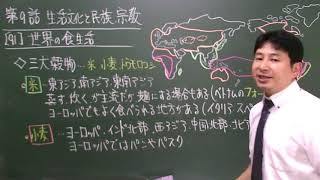 第9話 生活文化と民族、宗教
[91] 世界の食生活
◇三大穀物…米、小麦、トウモロコシ
米 東アジア、南アジア、東南アジア
蒸す、炊くが主流だが麺にする場合もある(ベトナムのフォー
ヨーロッパでもよく食べられる地方がある(イタリア、スペ
小麦 ヨーロッパ、インド北部、西アジア、中国北部、北ア
ヨーロッパではパンやパスタ